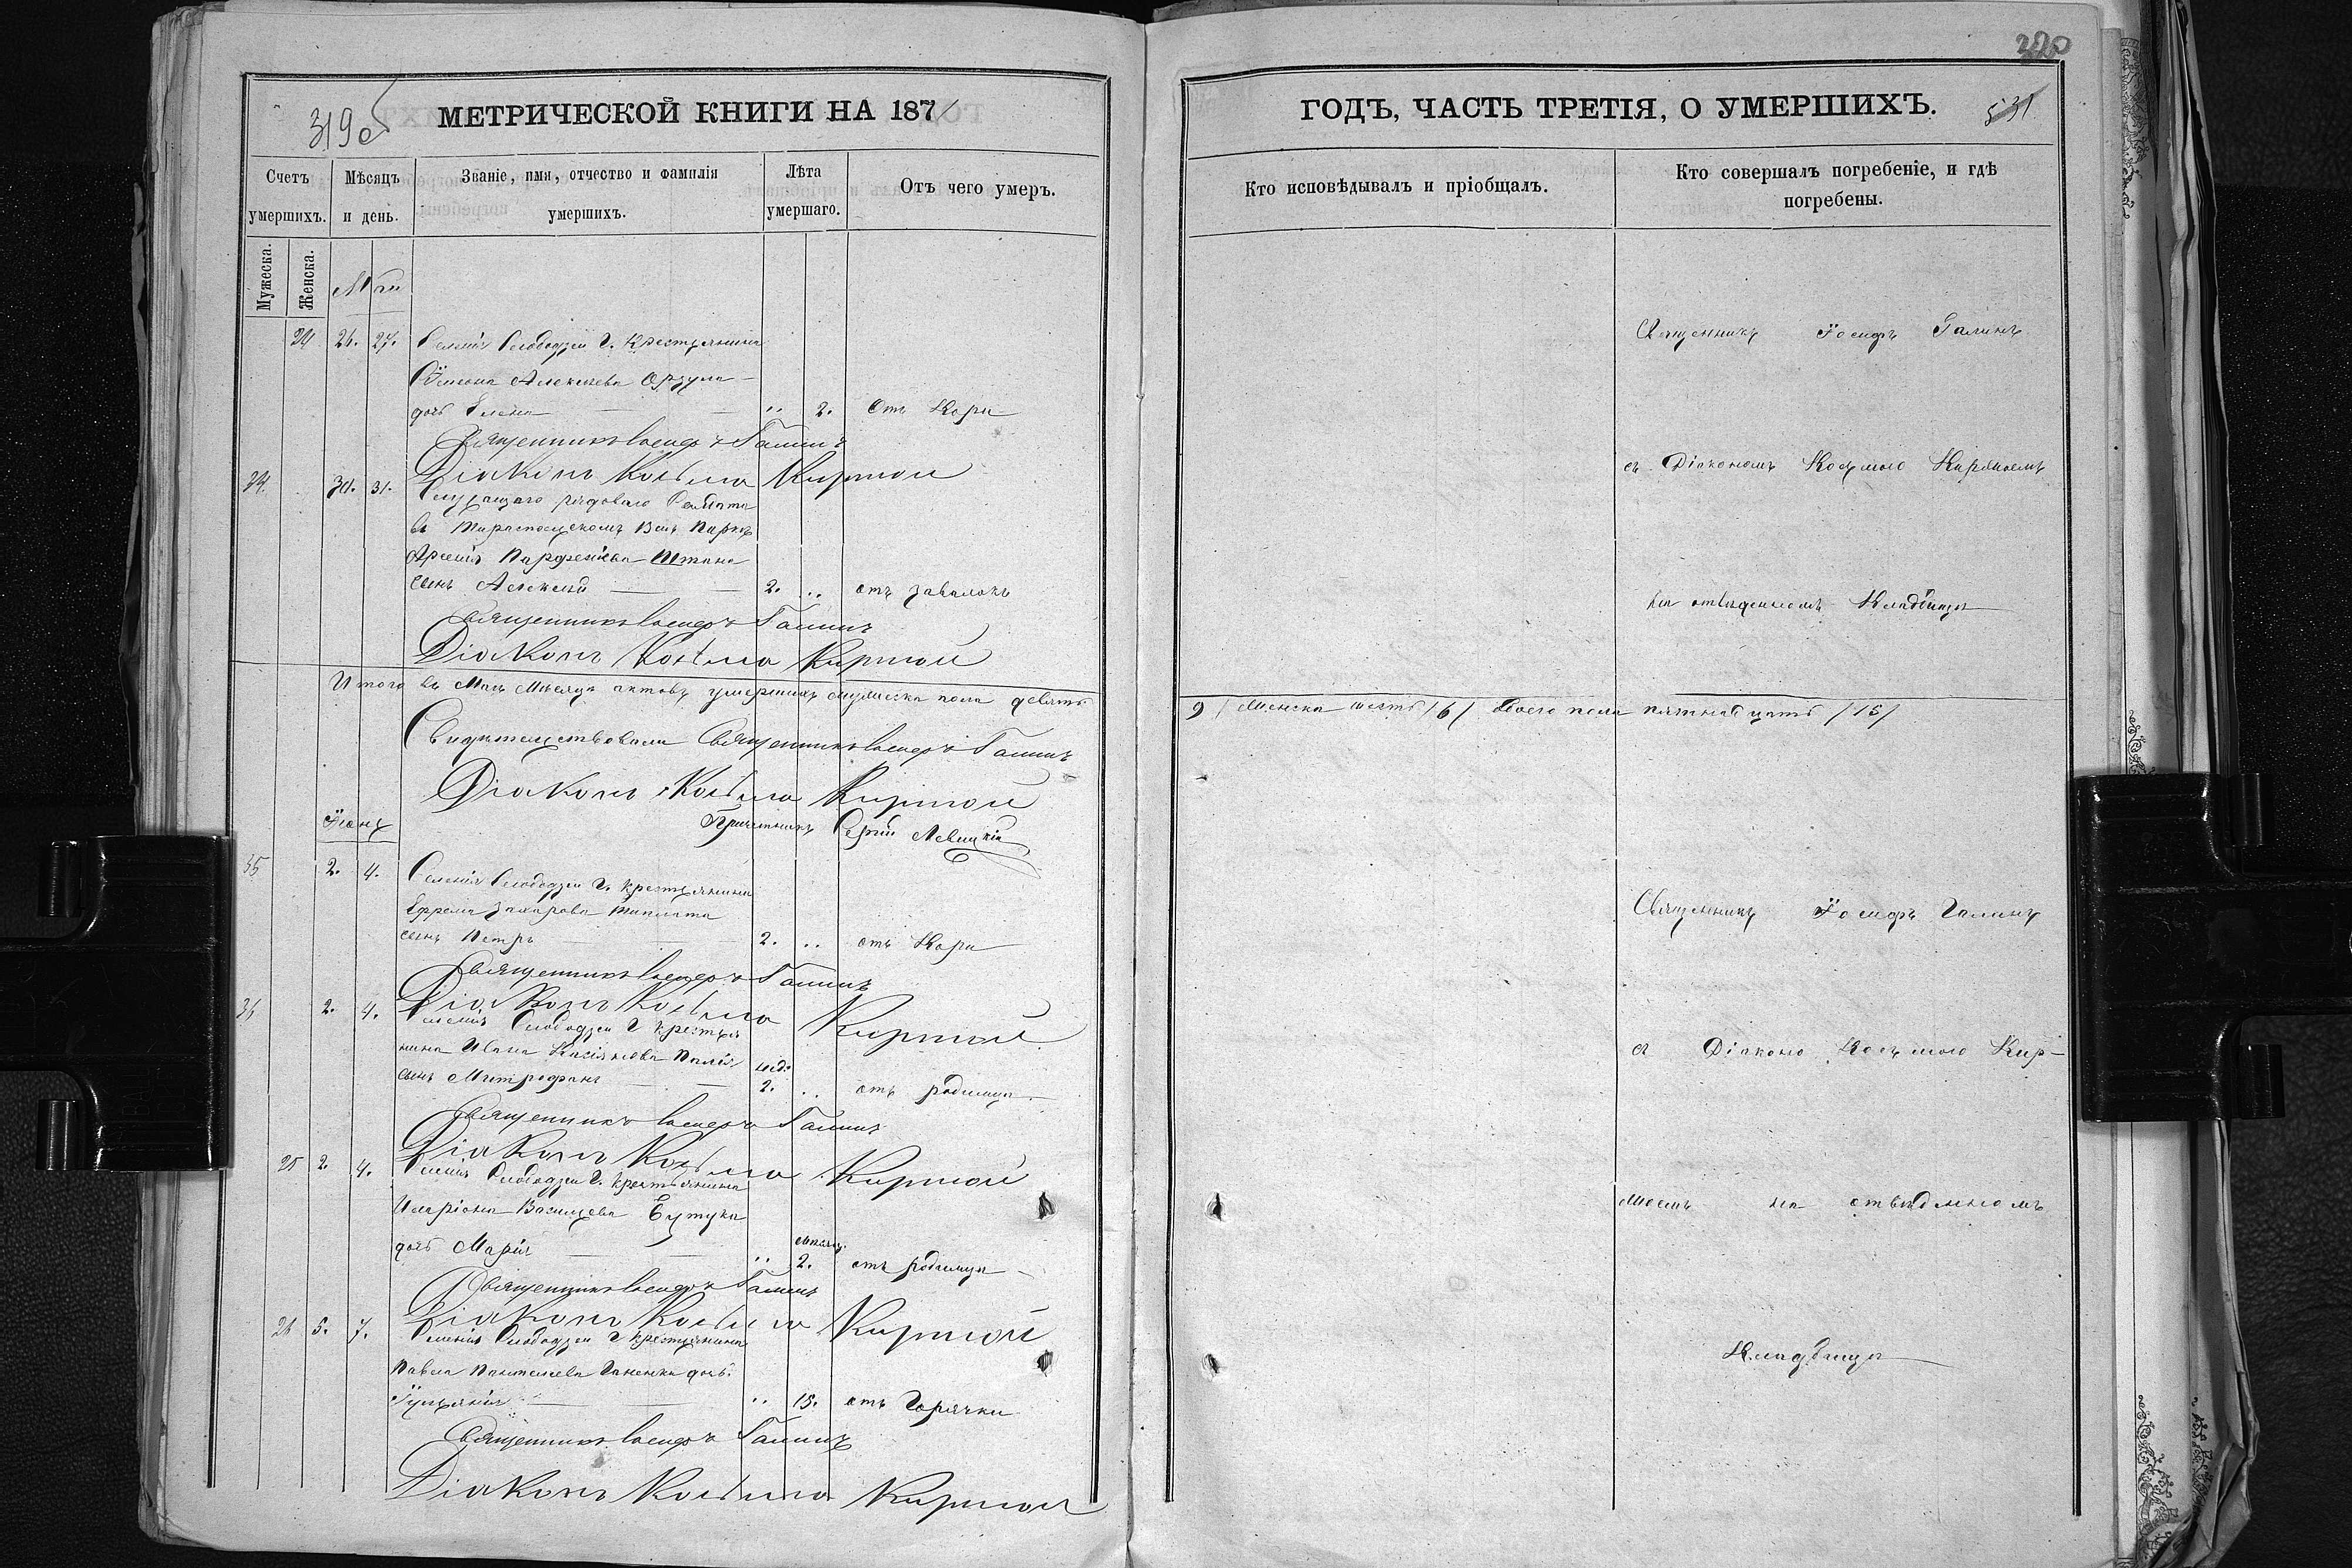 319 об
МЕТРИЧЕСКОЙ КНИГИ НА 187
Счетъ умершихъ.
Мѣсяцъ и день.
Званіе, имя, отчество и фамилія умершихъ.
Лѣта умершаго.
Отъ чего умеръ.
Мужеска.
Женска.
Май
24 26. 27. Селенія Слободзеи Г. Крестьянина
Симеона Алексѣева
дочь Елена " 2. Отъ Кори
Священникъ Іосифъ Галинъ
Діаконъ Косьма Кирной
34. 30. 31. Служащаго рядоваго Солдата
въ Тираспольскомъ Паркѣ
Арсенія Парфеніева Штана
сынъ Алексѣй 2. " отъ завалокъ
Священникъ Іосифъ Галинъ
Діаконъ Косьма Кирной
Итого въ Маѣ Мѣсяцѣ актовъ умершихъ мужеска пола девять
Свидѣтельствовали Священникъ Іосифъ Галинъ
Діаконъ Косьма Кирной
Причетникъ Сергій Левицкій
Іюнь
35 2. 4. Селенія Слободзеи Г. крестьянина
Ефрема Захарова
сынъ Петръ 2. " отъ Кори
Священникъ Іосифъ Галинъ
Діаконъ Косьма Кирной
36 2. 4. Селенія Слободзеи Г крестья
нина Ивана Палія нед:
сынъ Митрофанъ 2. " отъ родимца
Священникъ Іосифъ Галинъ
Діаконъ Косьма Кирной
25 2. 4. Селенія Слободзеи Г. крестьянина
Иларіона Васильева
дочь Марія " мѣсяц. 2. отъ родимца
Священникъ Іосифъ Галинъ
Діаконъ Косьма Кирной
26 5. 7. Селенія Слободзеи Г крестьянина
Павла Пантелеева дочь
Іуліянія " 15. отъ Горячки
Священникъ Іосифъ Галинъ
Діаконъ Косьма Кирной
320
ГОДЪ, ЧАСТЬ ТРЕТІЯ, О УМЕРШИХЪ.
531
Кто исповѣдывалъ и пріобщалъ.
Кто совершалъ погребеніе, и гдѣ
погребены.
Священникъ Іосифъ Галинъ
съ Діакономъ Косьмою
на отведенномъ Кладбищѣ
9 / Женска шесть /6/ Обоего пола пятнадцать /15/
Священникъ Іосифъ Галинъ
съ Діаконо Косьмою Кир-
ноемъ на отведенномъ
Кладбищѣ